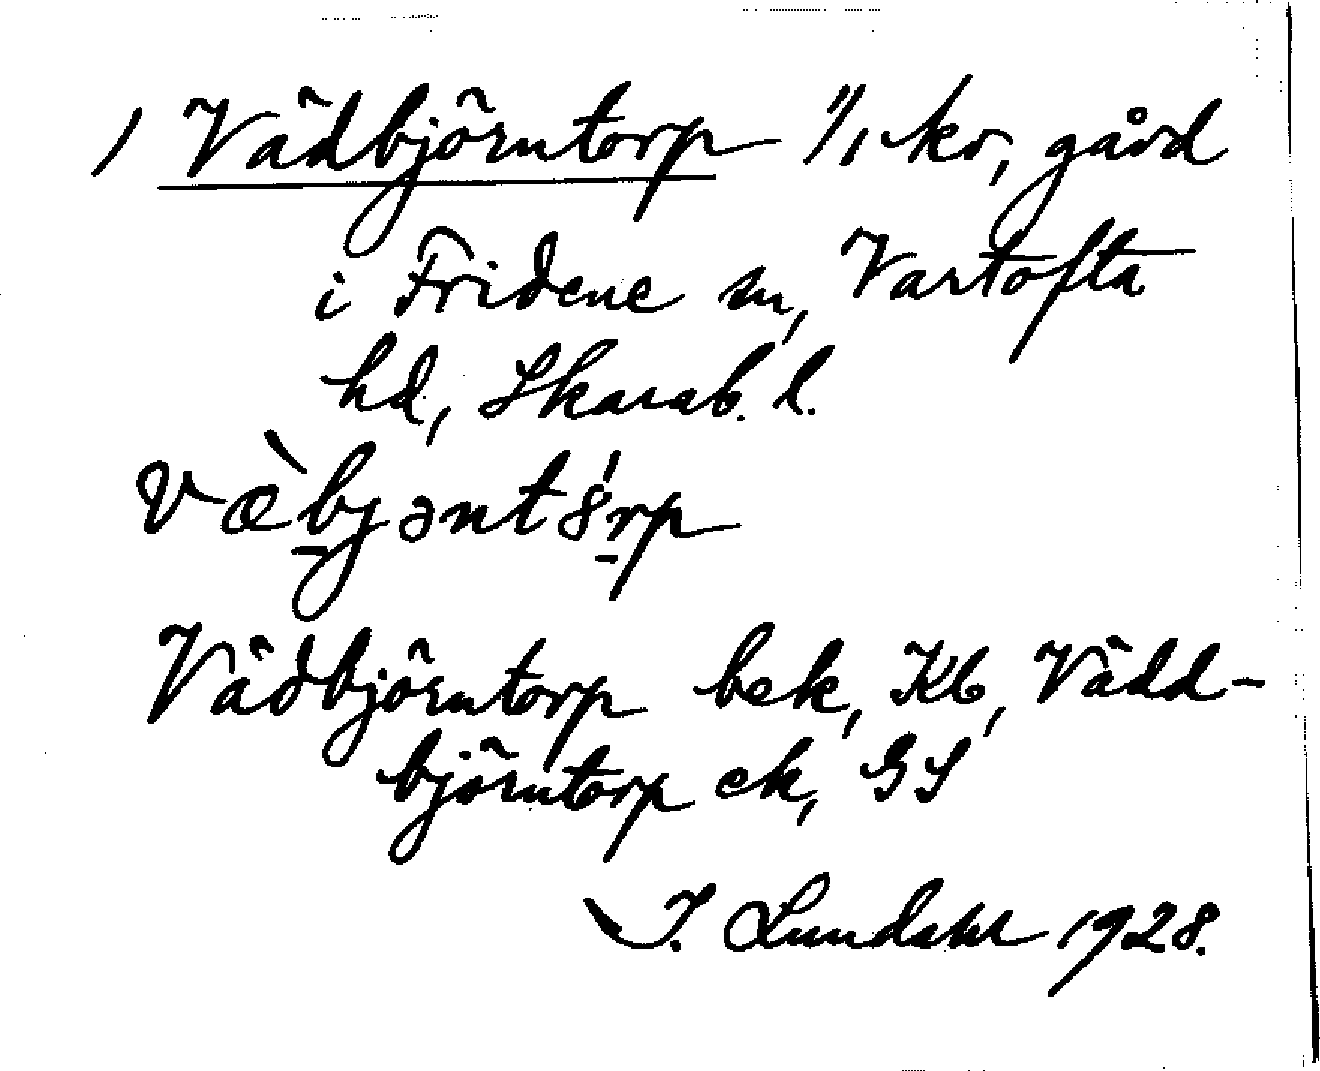 1 Vädbjörntorp 1/1 kr, gård
i Fridene sn, Vartofta
hd, Skarab. l.
væ̀bjənt8́rp
Vädbjörntorp bek, Kb, Vädd-
björntorp ek, GS
I. Lundahl 1928.